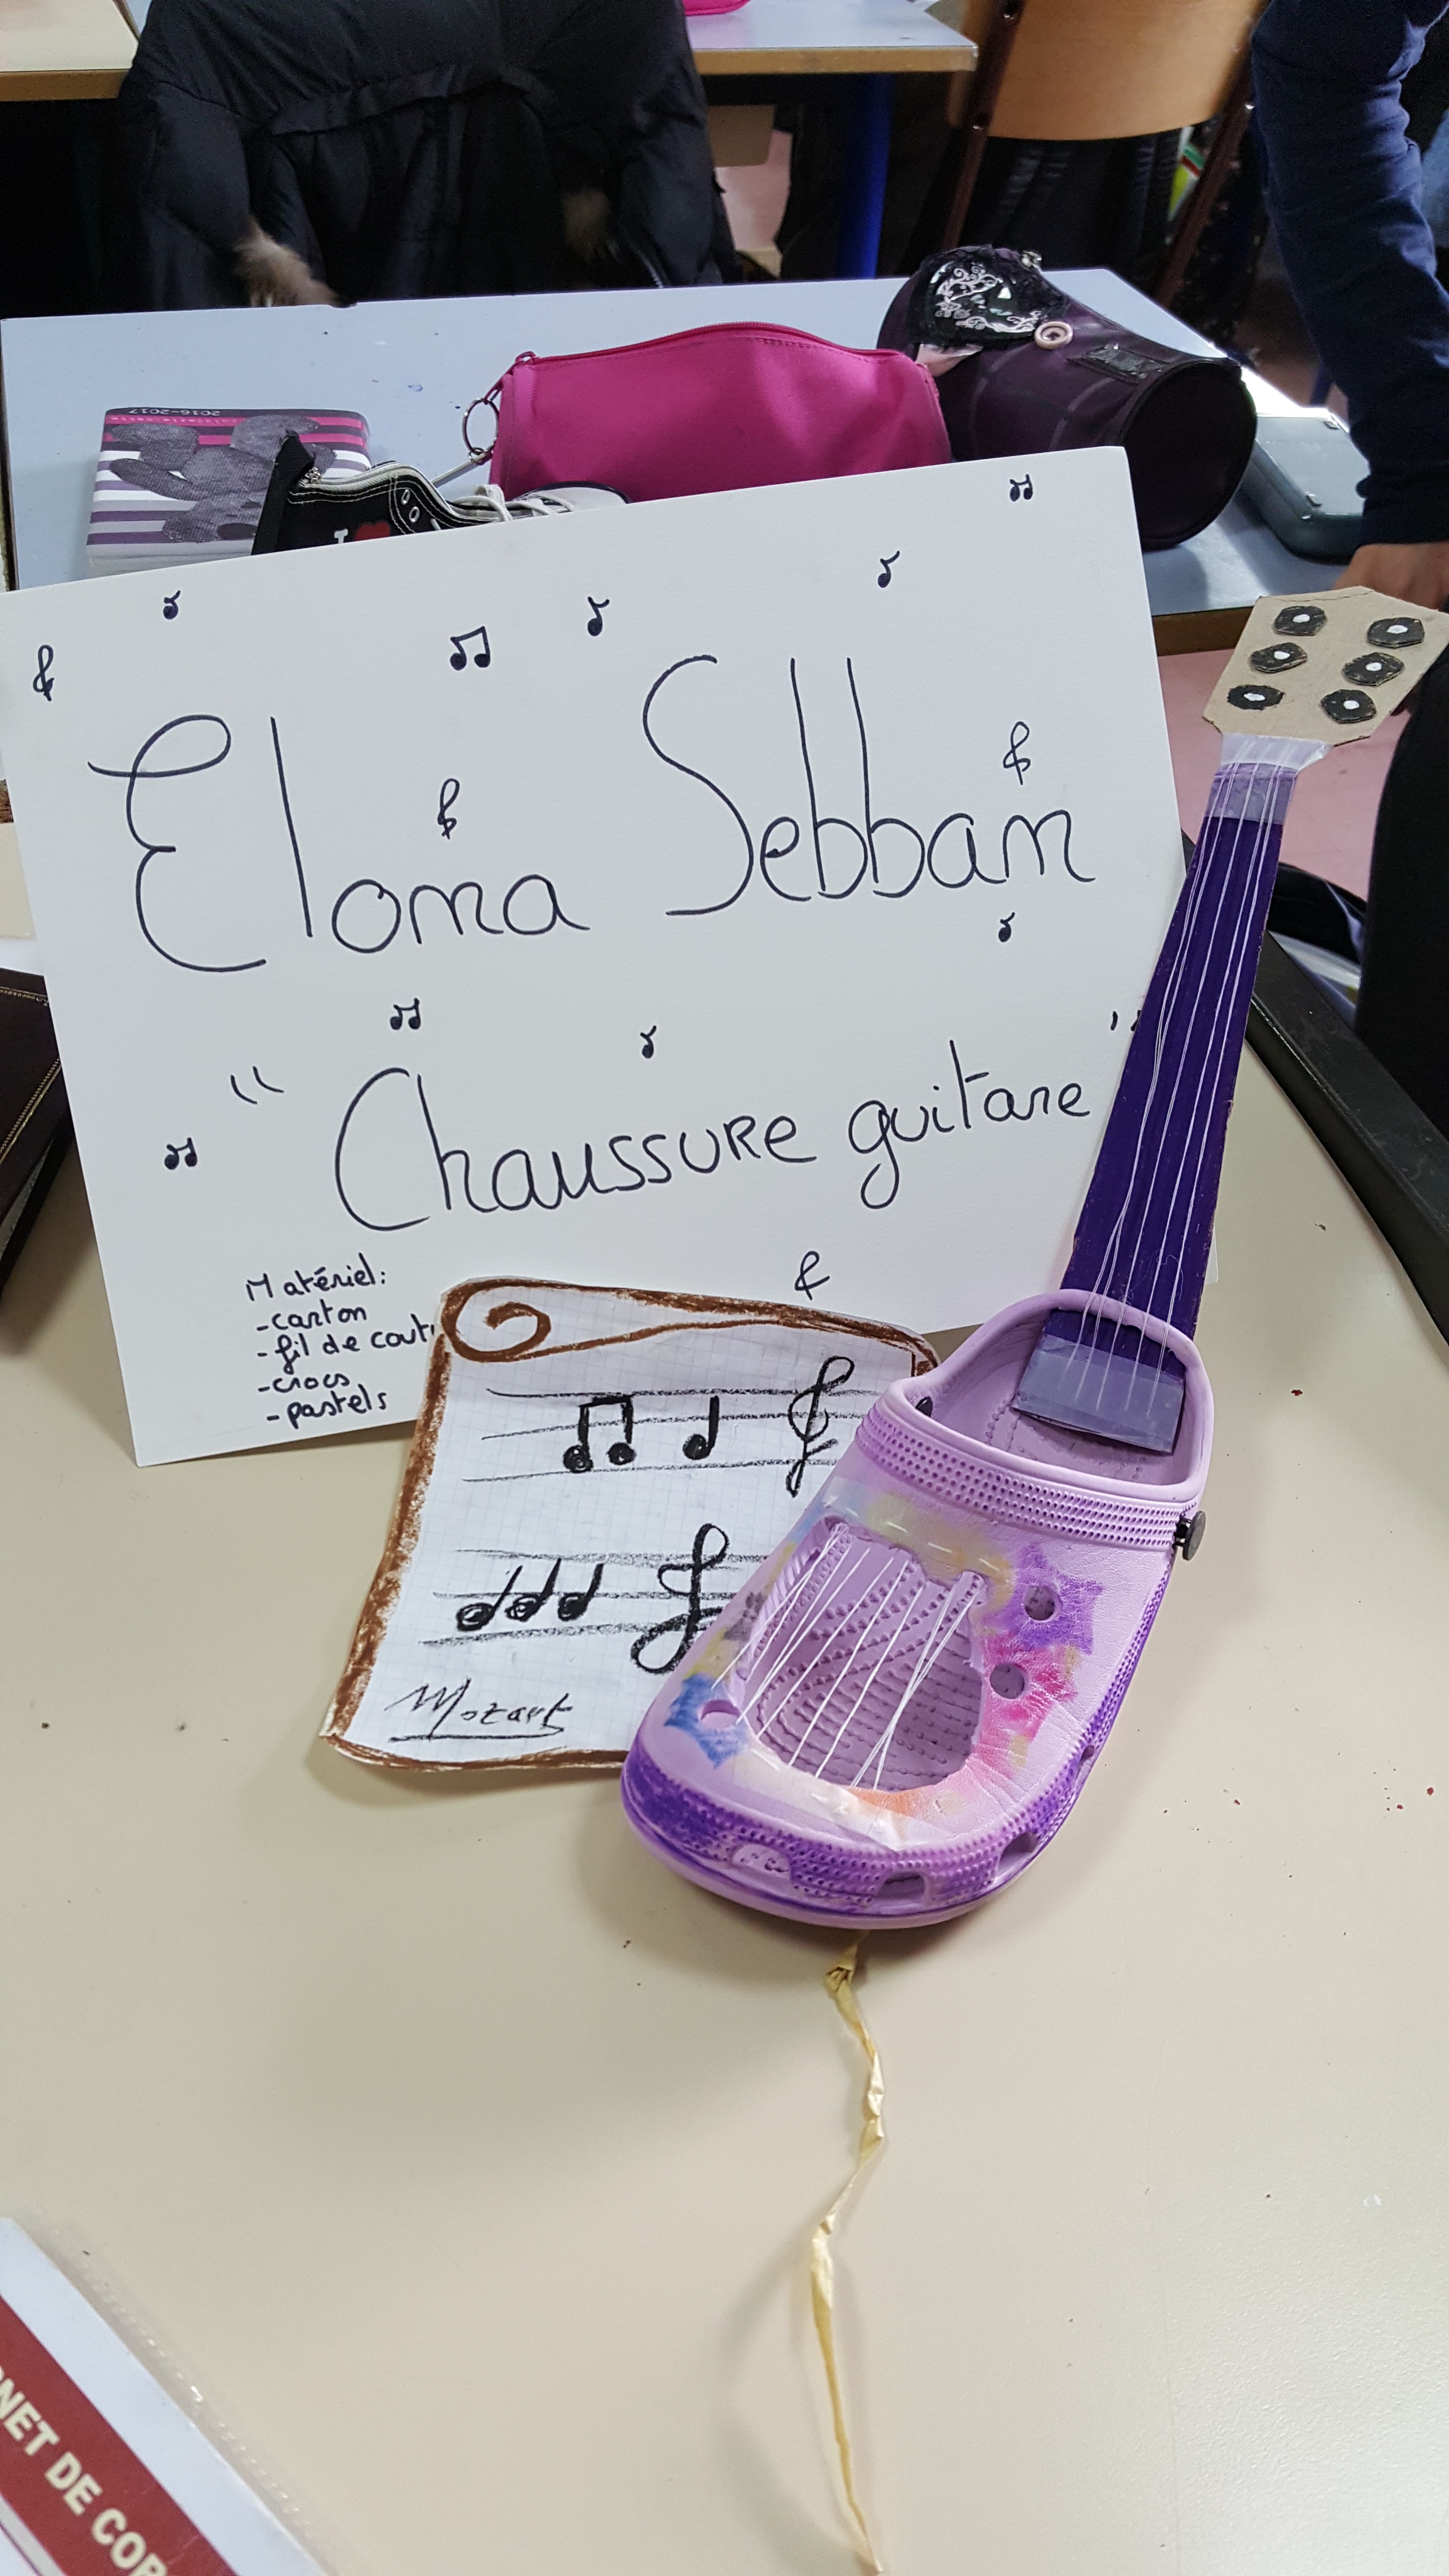 2016-2017
I
Eloma Sebban
" Chaussure guitare "
Matériel:
-carton
-fil de cout
-crocs
-pastels
Mozart
NET DE COR